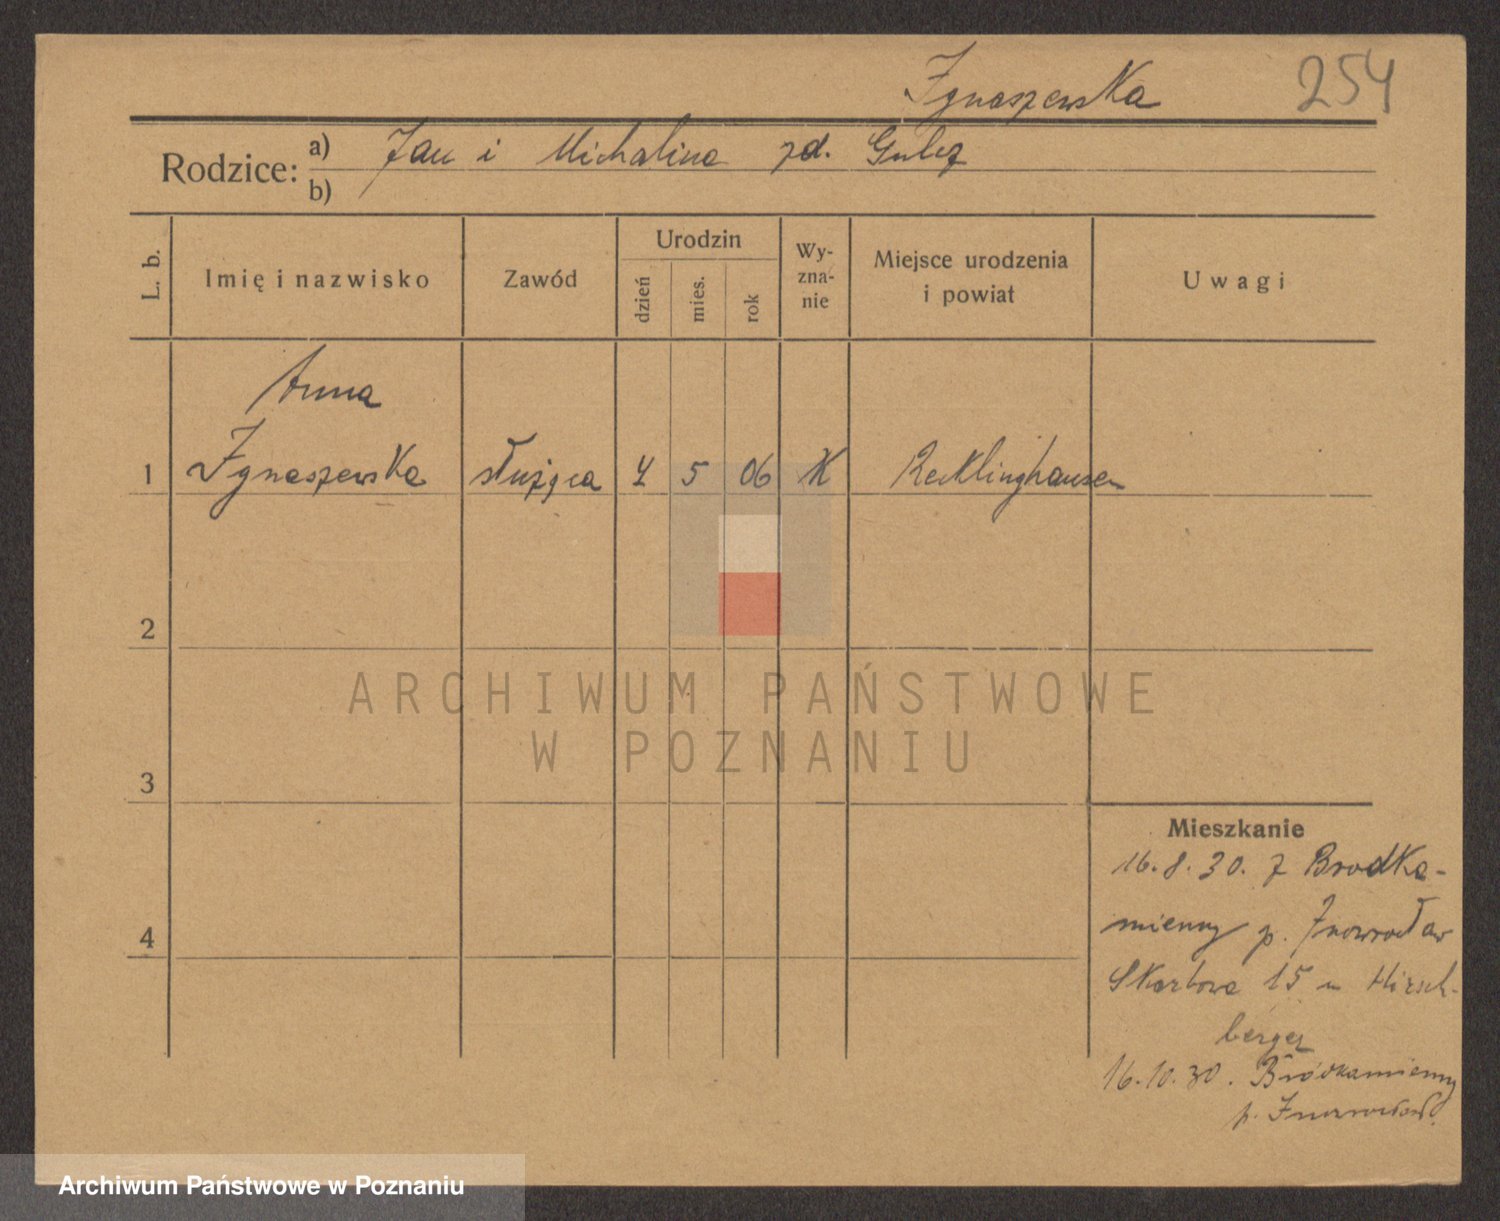 Ignaszewska 254
Rodzice: a) Jan i Michalina zd. Gulcz
b)
L. b. Imię i nazwisko Zawód Urodzin dzień mies. rok Wy-zna-nie Miejsce urodzenia i powiat Uwagi
Anna
1 Ignaszewska służąca 4 5 06 K Recklinghausen
2
3
4
Mieszkanie
16.8.30. z Brodka-
mienny p. Inowrocław
Skarbowa 15 u Hirsch-
berger
16.10.30. Bródkamienny
p. Inowrocław
ARCHIWUM PAŃSTWOWE
W POZNANIU
Archiwum Państwowe w Poznaniu